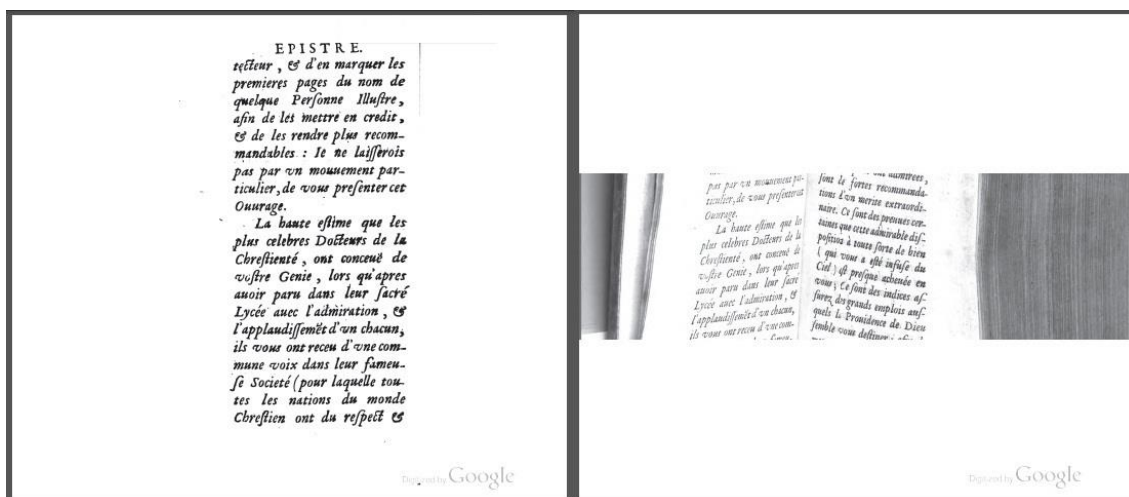 EPISTRE.
tecteur, & d'en marquer les
premieres pages du nom de
quelque Perſonne Illuſtre,
afin de les mettre en credit,
& de les rendre plus recom-
mandables : Ie ne laiſſerois
pas par vn mouuement par-
ticulier, de vous preſenter cet
Ouurage.
La haute eſtime que les
plus celebres Docteurs de la
Chreſtienté, ont conceuë de
voſtre Genie, lors qu'apres
auoir paru dans leur ſacré
Lycée auec l'admiration, &
l'applaudiſſemẽt d'vn chacun,
ils vous ont receu d'vne com-
mune voix dans leur fameu-
ſe Societé (pour laquelle tou-
tes les nations du monde
Chreſtien ont du reſpect &
Digitized by Google
pas par vn mouuement pa-
ticulier, de vous preſenter cet
Ouurage.
La haute eſtime que les
plus celebres Docteurs de la
Chreſtienté, ont conceuë de
voſtre Genie, lors qu'apres
auoir paru dans leur ſacré
Lycée auec l'admiration, &
l'applaudiſſemẽt d'vn chacun,
ils vous ont receu d'vne com-
ſont de fortes recommanda-
tions d'vn merite extraordi-
naire. Ce ſont des preuues cer-
taines que cette admirable diſ-
poſition à toute ſorte de bien
( qui vous a eſté infuſe du
Ciel ) eſt preſque acheuée en
vous ; Ce ſont des indices aſ-
ſurez des grands emplois auſ-
quels la Prouidence de Dieu
ſemble vous deſtiner ;
Digitized by Google